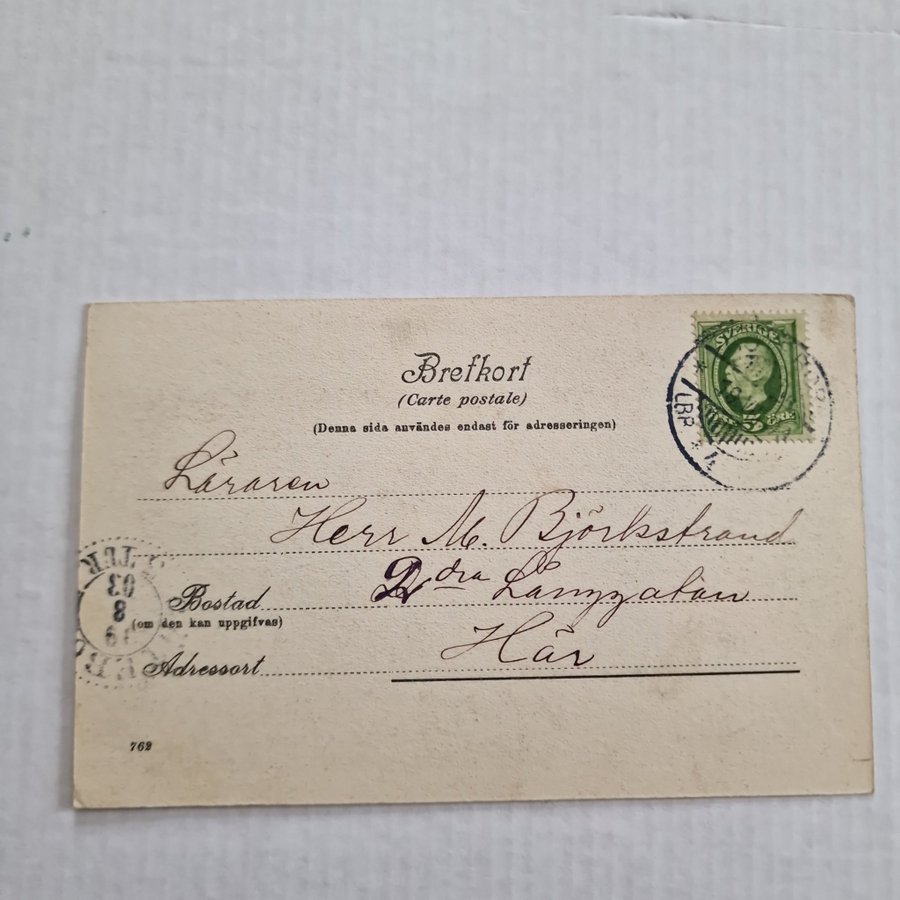 SVERIGE
5 ÖRE
LBR.
Brefkort
(Carte postale)
(Denna sida användes endast för adresseringen)
Läraren
Herr M. Björkstrand
dra Långgatan
Bostad
(om den kan uppgifvas)
Här
Adressort
03
8
19
762